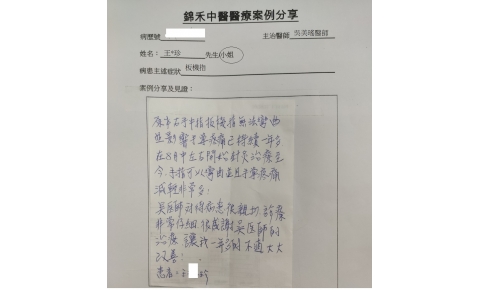 錦禾中醫醫療案例分享
病歷號
主治醫師 吳美瑤醫師
姓名： 王*珍 先生/小姐
病患主述症狀 板機指
案例分享及見證：
右手中指板機指無法彎曲
並影響手掌疼痛已持續一年多
在8月中左右開始針灸治療至
今,手指可以彎曲並且手掌疼痛
減輕非常多。
吳醫師對待病患很親切,診療
非常仔細,很感謝吳醫師的
治療 讓我一年多的不適大大
改善!
患者: 王 珍